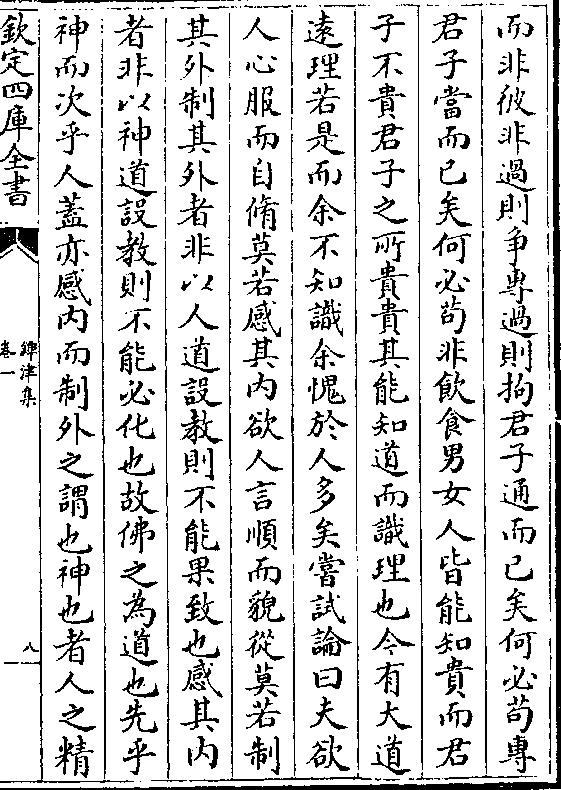 而非彼非過則争專過則拘君子通而已矣何必苟專
君子當而已矣何必苟非飲食男女人皆能知貴而君
子不貴君子之所貴貴其能知道而識理也今有大道
遠理若是而余不知識余愧於人多矣嘗試論曰夫欲
人心服而自脩莫若感其内欲人言順而貌從莫若制
其外制其外者非以人道設教則不能果致也感其内
者非以神道設教則不能必化也故佛之為道也先乎
神而次乎人蓋亦感内而制外之謂也神也者人之精
欽定四庫全書
鐔津集
卷一
八